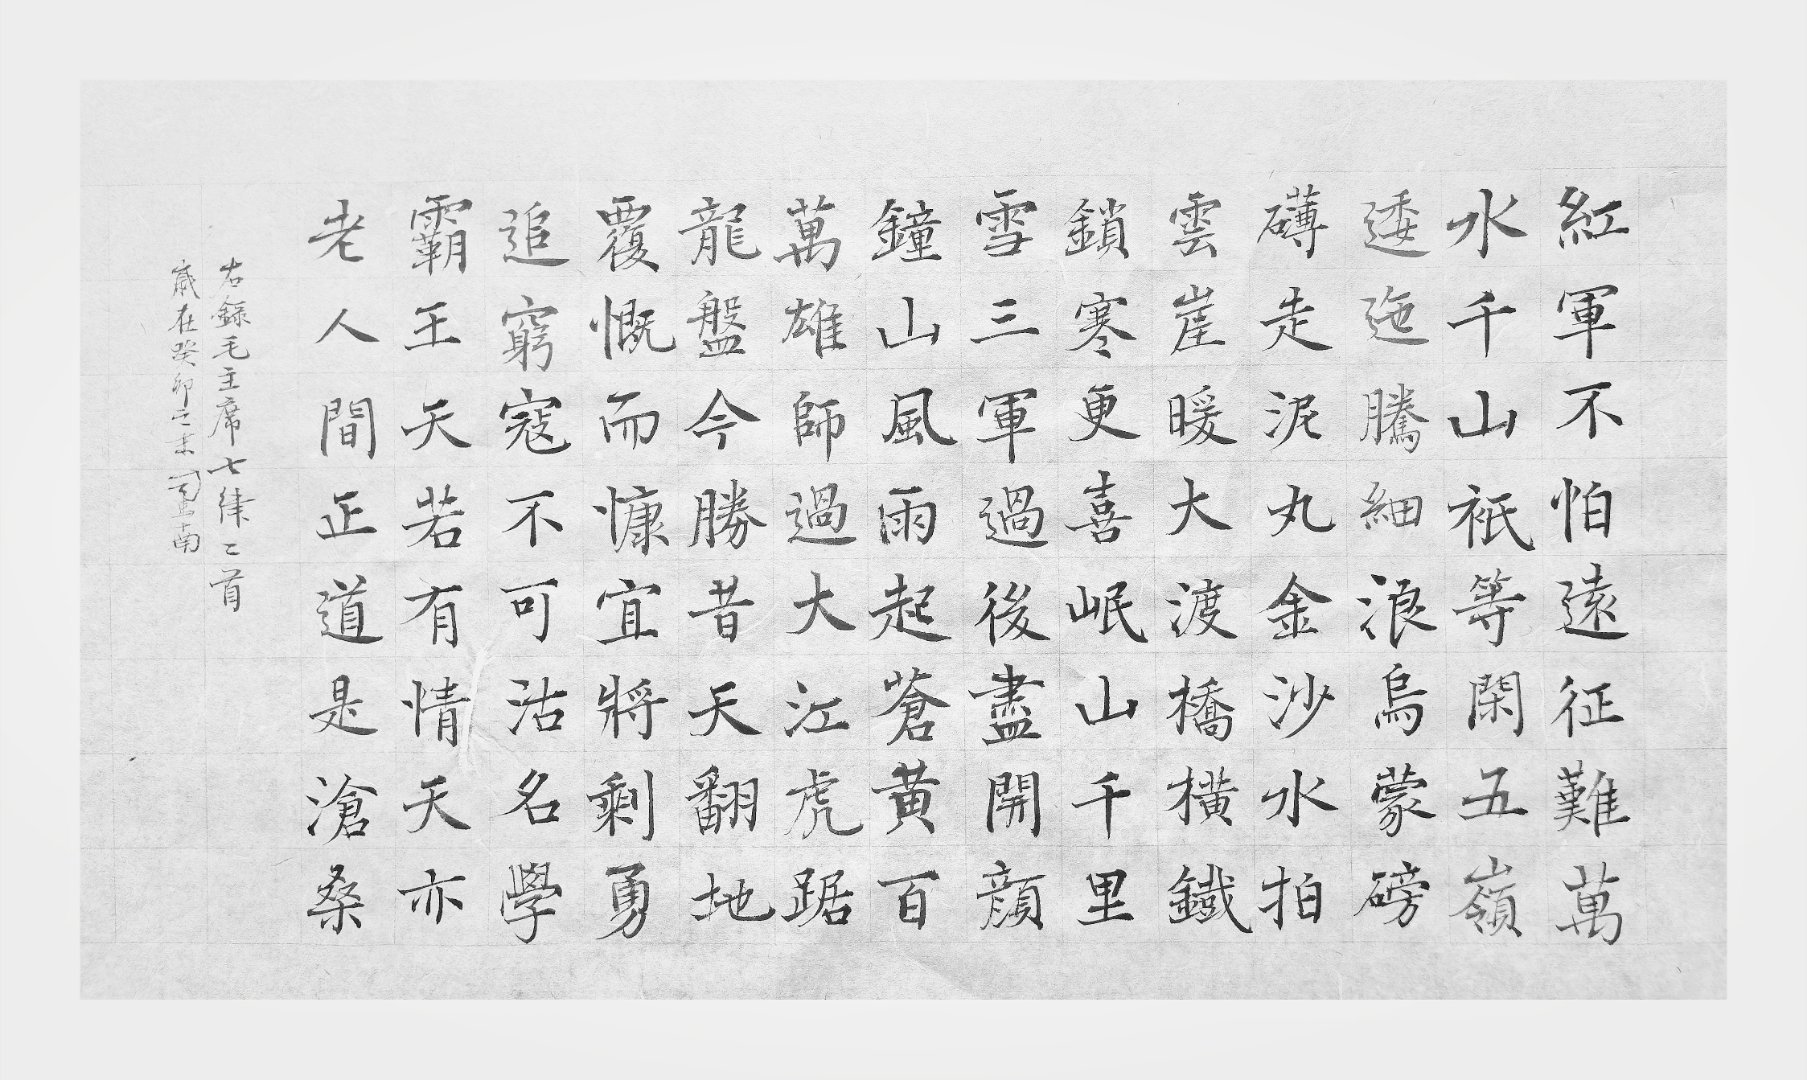 紅軍不怕遠征難萬
水千山祇等閑五嶺
逶迤騰細浪烏蒙磅
礴走泥丸金沙水拍
雲崖暖大渡橋橫鐵
鎖寒更喜岷山千里
雪三軍過後盡開顏
鐘山風雨起蒼黃百
萬雄師過大江虎踞
龍盤今勝昔天翻地
覆慨而慷宜將剩勇
追窮寇不可沽名學
霸王天若有情天亦
老人間正道是滄桑
右錄毛主席七律二首
歲在癸卯之末南